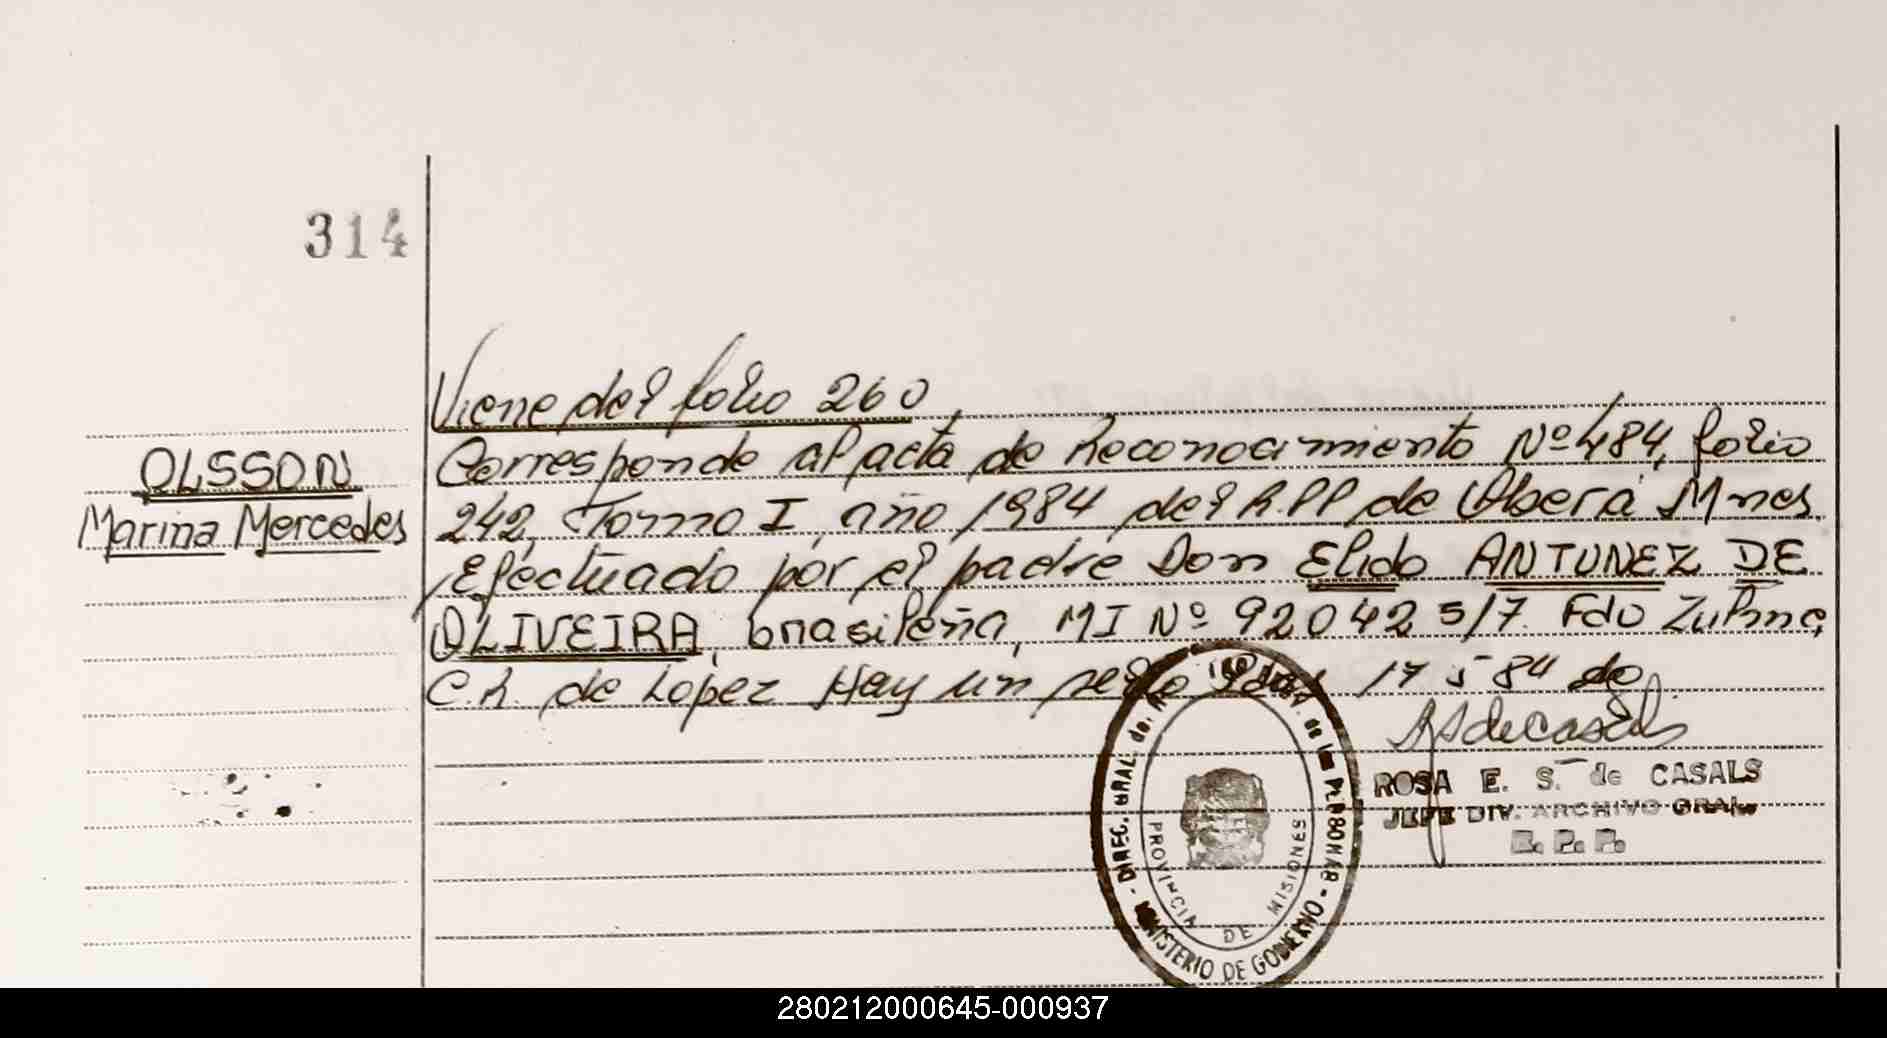 314
Viene del folio 260,
OLSSON
Marina Mercedes
Corresponde al acta de Reconocimiento Nº 484, folio
242, Tomo I, año 1984 del R.PP de Oberá Mnes.
Efectuado por el padre Don Elido ANTUNEZ DE
OLIVEIRA, brasileña, MI Nº 92042517. Fdo Zulma
C.R. de Lopez Hay un sello Pdas 17 5 84 do
ROSA E. S. de CASALS
JEFE DIV. ARCHIVO GRAL.
R. P. P.
DIREC. GRAL. de las PERSONAS
PROVINCIA DE MISIONES
MINISTERIO DE GOBIERNO
280212000645-000937